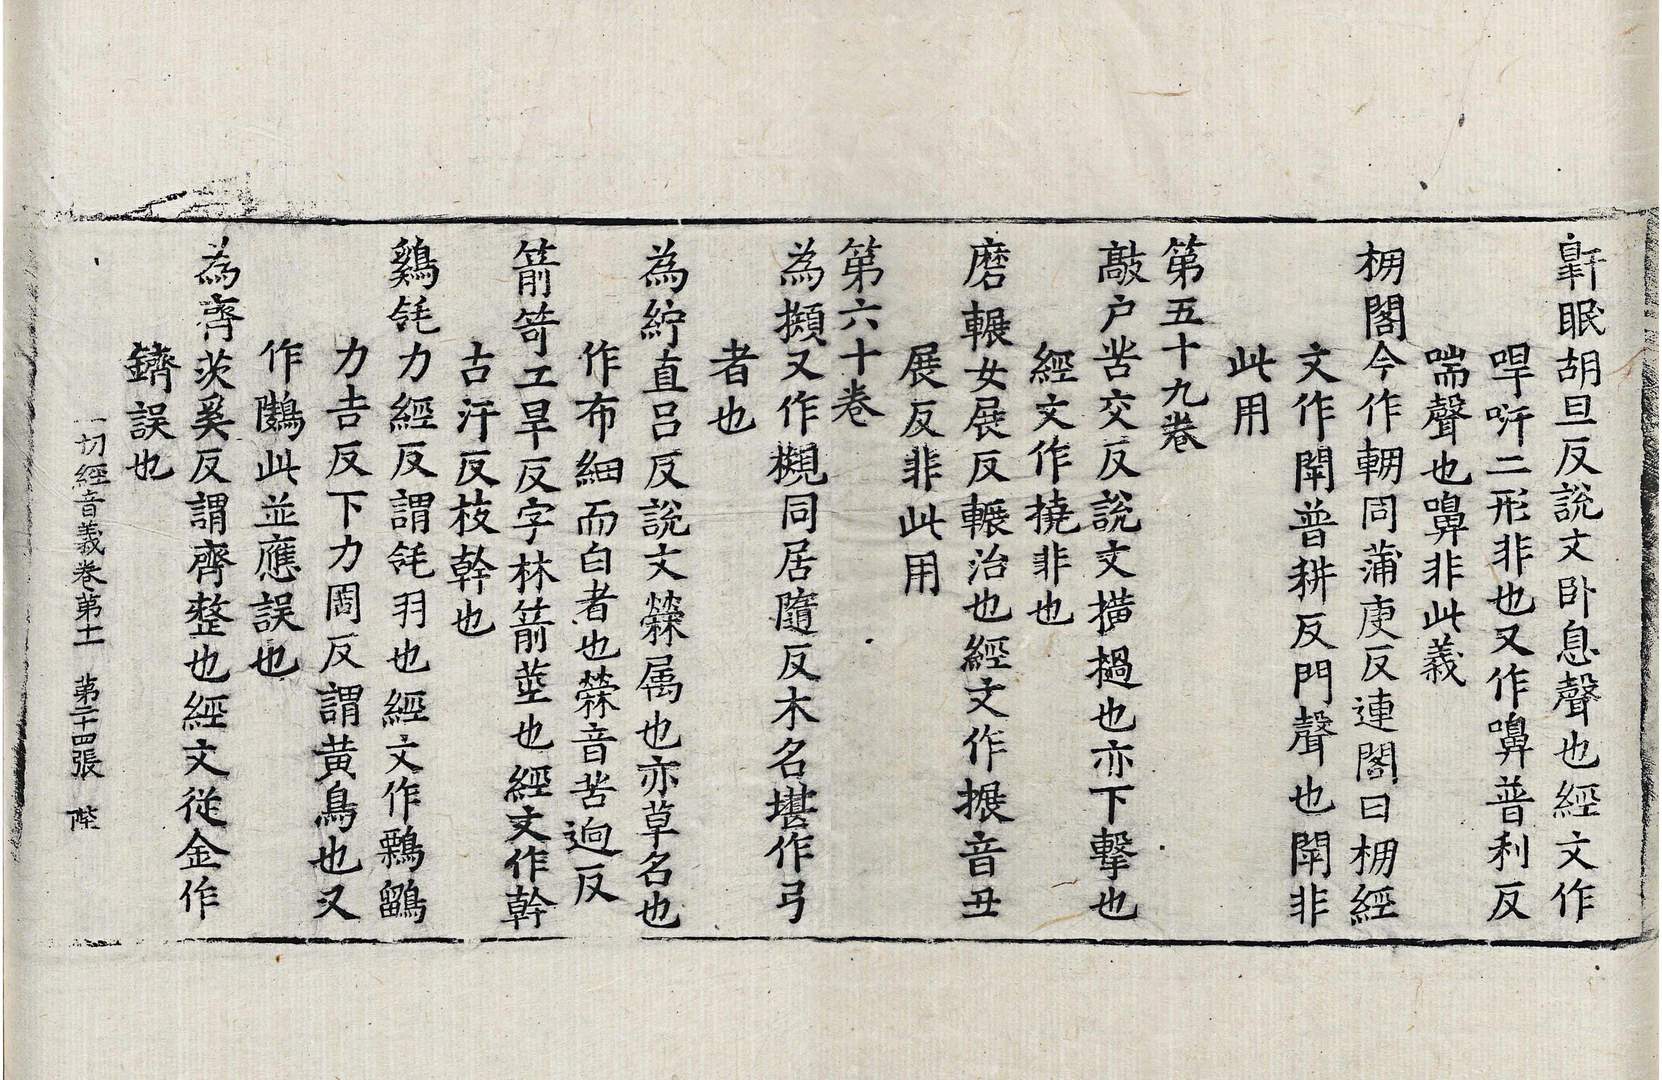 鼾眠胡旦反說文卧息聲也經文作
哻吁二形非也又作嚊普利反
喘聲也嚊非此義
棚閣今作輣同蒲庚反連閣曰棚經
文作閛普耕反門聲也閛非
此用
第五十九卷
敲户苦交反說文撗撾也亦下擊也
經文作撓非也
磨輾女展反輾治也經文作搌音丑
展反非此用
第六十卷
為㩓又作槻同居隨反木名堪作弓
者也
為紵直吕反說文檾属也亦草名也
作布細而白者也檾音苦迥反
箭笴工旱反字林箭莖也經文作幹
古汗反枝幹也
鷄毦力經反謂毦羽也經文作鷅鶹
力吉反下力周反謂黄鳥也又
作鷜此並應誤也
為齊茨奚反謂齊整也經文從金作
鑇誤也
一切經音義卷第十一 第二十四張 陛